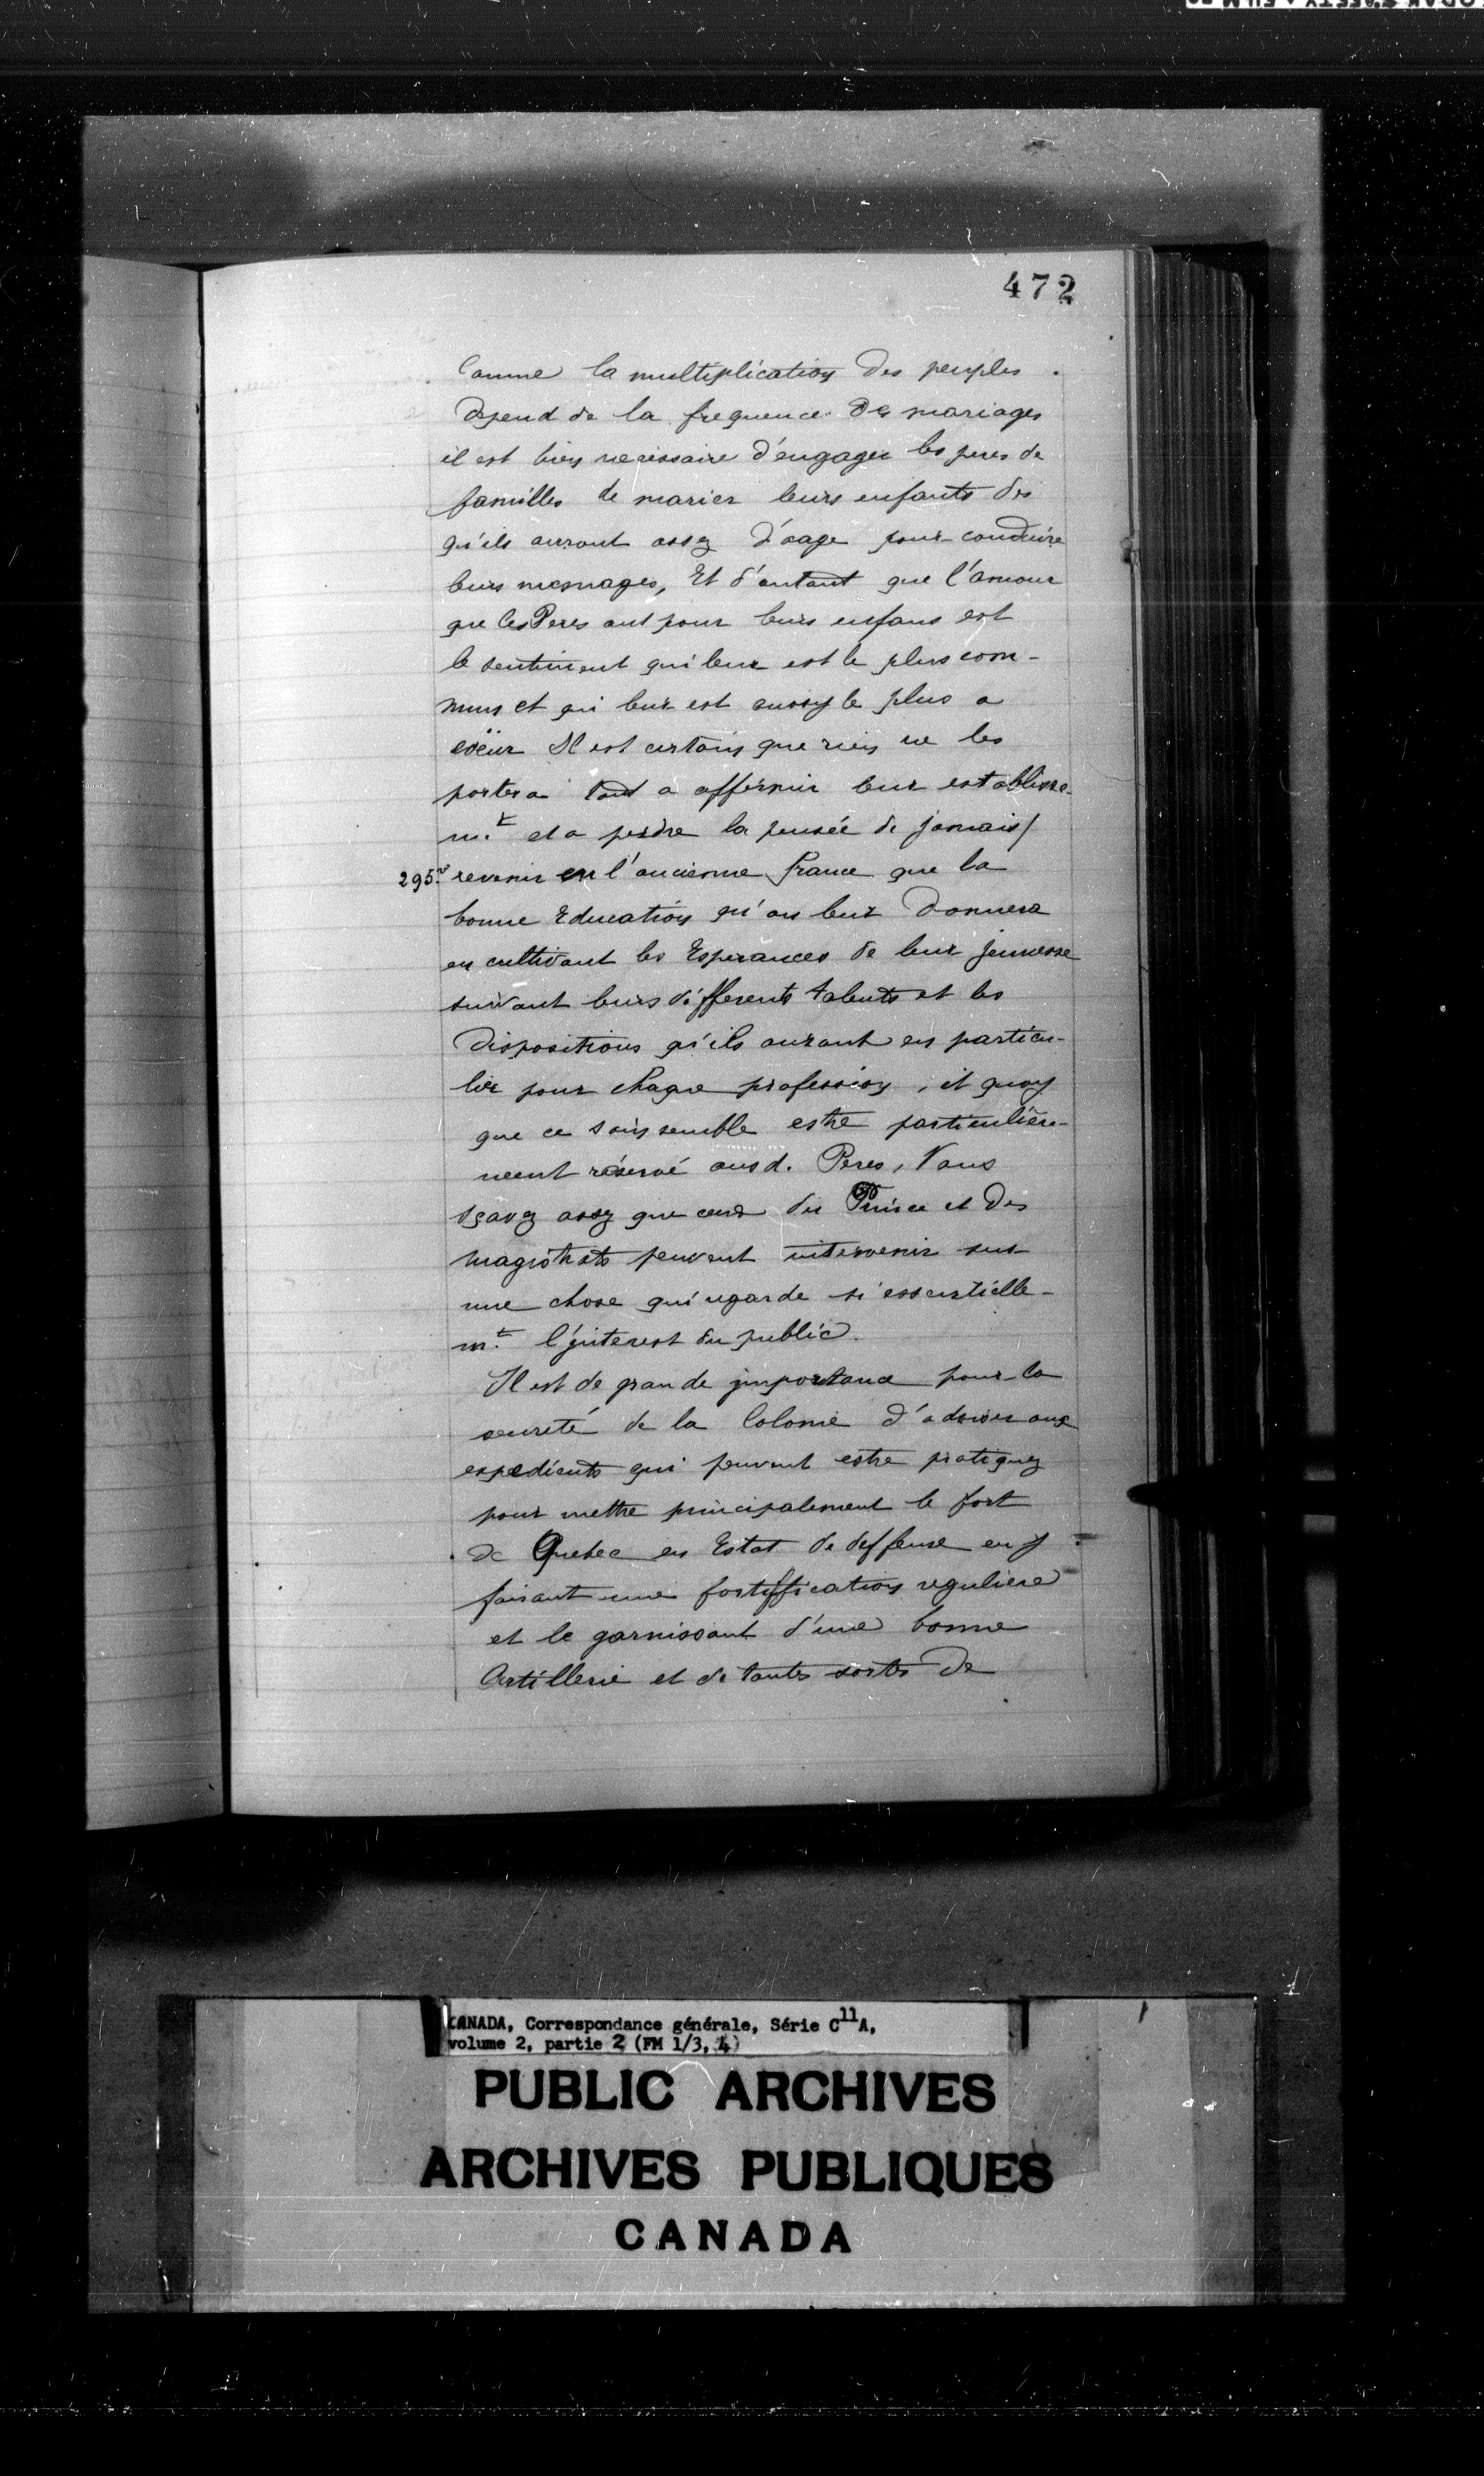 472
Comme la multiplication des peuples
depend de la frequence des mariages
il est bien necessaire d'engager les peres de
familles de marier leurs enfants des
qu'ils auront assez d'aage pour conduire
leurs mesnages, Et d'autant que l'amour
que les Peres ont pour leurs enfans est
le sentiment qui leur est le plus com-
mun et qui leur est aussy le plus a
coeur Il est certain que rien ne les
portera tant a affermir leur establisse-
m.t et a perdre la pensée de jamais/
295.v revenir en l'ancienne france que la
bonne Education qu'on leur donnera
en cultivant les Esperances de leur jeunesse
suivant leurs differents talents et les
dispositions qu'ils auront en particu-
lier pour chaque profession, et quoy
que ce soin semble estre particulière-
ment réservé ausd. Peres, Vous
sçavez assez que ceux du Prince et des
magistrats peuvent intervenir sur
une chose qui regarde si essentielle-
m.t l'jnterest du public.
Il est de grande jmportance pour la
seureté de la Colonie d'adviser aux
expedients qui peuvent estre pratiquez
pour mettre principalement le fort
de Quebec en Estat de deffense en y
faisant une fortiffication reguliere
et le garnissant d'une bonne
Artillerie et de toutes sortes de
CANADA, Correspondance générale, Série C11A,
volume 2, partie 2 (FM 1/3, 4)
PUBLIC ARCHIVES
ARCHIVES PUBLIQUES
CANADA